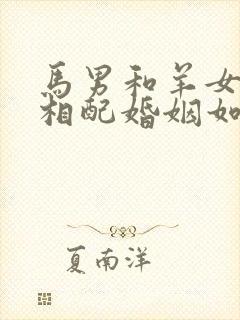 馬男和羊女
相配婚姻如
夏南洋